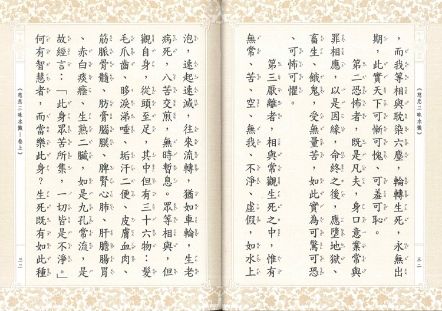 ，而我等相與耽染六塵，輪轉生死，永無出
期，此實天下可慚可愧、可羞可恥。
第二恐怖者，既是凡夫，身口意業常與
罪相應，以是因緣，命終之後，應墮地獄、
畜生、餓鬼，受無量苦，如此實為可驚可恐
、可怖可懼。
第三厭離者，相與常觀生死之中，惟有
無常、苦、空、無我、不淨、虛假，如水上
泡，速起速滅，往來流轉，猶如車輪，生老
病死，八苦交煎，無時暫息。眾等相與，但
觀自身，從頭至足，其中但有三十六物：髮
毛爪齒、眵淚涕唾、垢汗二便、皮膚血肉、
筋脈骨髓、肪膏腦膜、脾腎心肺、肝膽腸胃
、赤白痰癊、生熟二臟，如是九孔常流，是
故經言：「此身眾苦所集，一切皆是不淨。」
何有智慧者，而當樂此身？生死既有如此種
《慈悲三昧水懺—卷上》